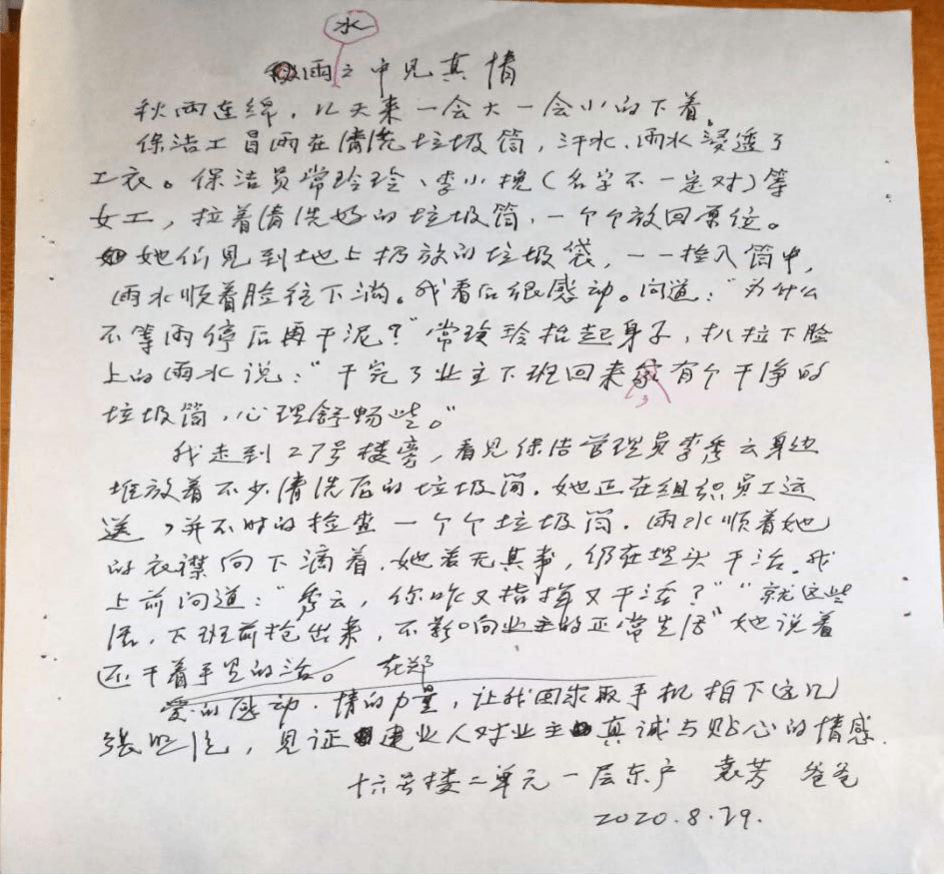 水
雨之中见真情
秋雨连绵，几天来一会大一会小的下着。
保洁工冒雨在清洗垃圾筒，汗水、雨水浸透了
工衣。保洁员常玲玲、李小槐（名字不一定对）等
女工，拉着清洗好的垃圾筒，一个个放回原位。
她们见到地上扔放的垃圾袋，一一捡入筒中，
雨水顺着脸往下淌。我看后很感动。问道：“为什么
不等雨停后再干泥？”常玲玲抬起身子，扒拉下脸
上的雨水说：“干完了业主下班回来，有个干净的
垃圾筒，心理舒畅些。”
我走到27号楼旁，看见保洁管理员李秀云身边
堆放着不少清洗后的垃圾筒，她正在组织员工运
送，并不时的检查一个个垃圾筒，雨水顺着她
的衣襟向下滴着，她若无其事，仍在埋头干活。我
上前问道：“秀云，你咋又指挥又干活？”“就这些
活，下班前抢出来，不影响业主的正常生活”她说着
还干着手里的活。 在郑
爱的感动、情的力量，让我回家取手机拍下这几
张照片，见证建业人对业主真诚与贴心的情感。
十六号楼二单元一层东户 袁芳 爸爸
2020.8.29.